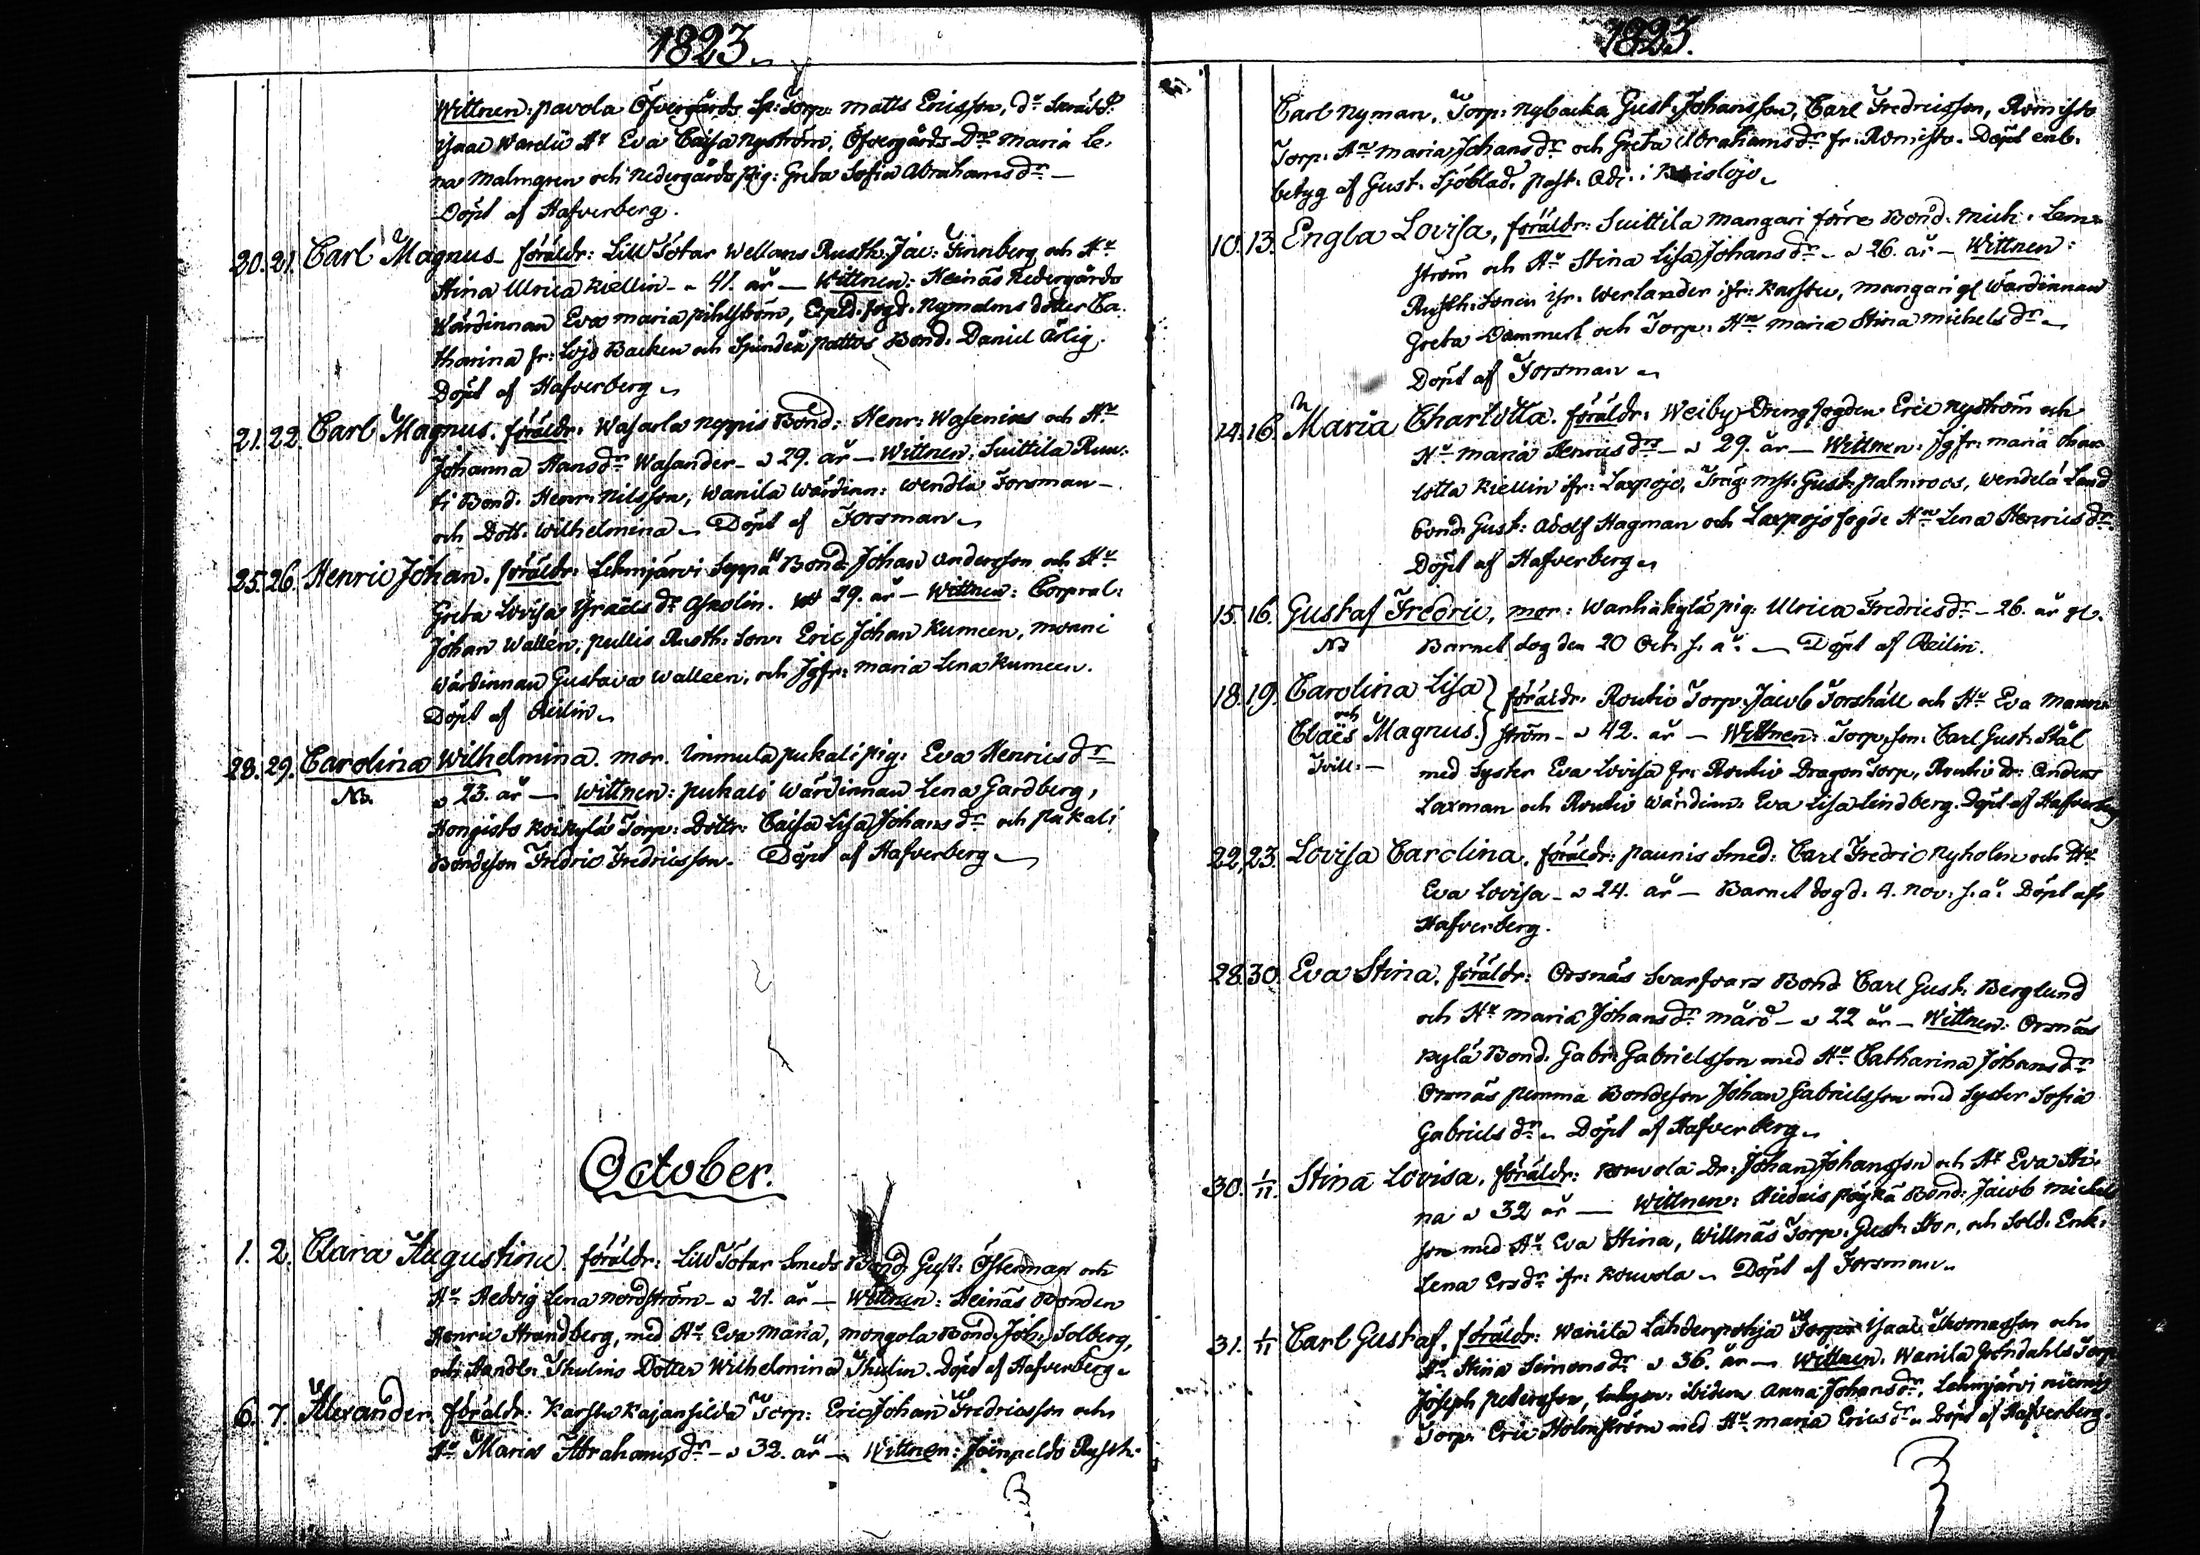 1823.
Wittnen: Pavola Öfvergårds Sp: Torp: Matts Ericsson, dr
Isaac Hu Eva Caisa Nyström, Öfvergårds Dne Maria Le,
na Malmgren och Nedergårds Pig: Greta Sofia Abrahams dr
Döpt af Hafverberg.
20. 21. Carl Magnus. föräldr: Lill Totar Wellans Rusth. Jac: Finnberg och Hu
Stina Ulrica Kiellin - a 41. år - Wittnen: Heinäs Nedergårds
Wärdinnan Eva Maria Pihlström, Nymalms dotter Ca,
tharina fr: Lojo Backen och Sjundeå Pottas Bond. Daniel Ärlig.
Döpt af Hafverberg
21. 22. Carl Magnus. föräldr: Wasarla Neppis Bond: Henr: Wasenius och Hu
Johanna Hans dr Wasander - a 29. år - Wittnen. Suittila Run,
ti Bond. Henr: Nilsson, Wanila Wärdinn: Wendla Forsman -
och Dott. Wilhelmina - Döpt af Forsman
25. 26. Henric Johan. föräldr: Lehmjärvi Seppä Bond. Johan Andersson och Hu
Greta Lovisa Israels dr 29. år - Wittnen: Corpral:
Johan Wallén, Pullis Rusth. Son: Eric Johan Kumeen, Monni
Wärdinnan Gustava Walleen, och Jgfr: Maria Lena Kumeen.
Döpt af Reilin
28. 29. Carolina Wilhelmina. mor. Immula Pukali pig: Eva Henrics dr
Nb. a 23. år - Wittnen: Pukali Wärdinnan Lena Gardberg,
Hongisto Koikylä Torp: Dottr: Caisa Lisa Johans dr och Pukali
Bondeson Fredric Fredricsson. Döpt af Hafverberg
October.
1. 2. Clara Augustina. föräldr: Lill Totar Smeds Bond Gust: Österman och
Hu Hedvig Lena Nordström - a 21. år - Wittnen: Heinäs Bonden
Henric Strandberg, med Hu Eva Maria, Mongola Bond Joh: Solberg,
och Handl: Thulins Dotter Wilhelmina Thulin. Döpt af Hafverberg
6. 7. Alexander. föräldr: Karstu Kajansilda Torp: Eric Johan Fredricsson och
Hu Maria Abrahams dr - a 32. år - Wittnen: Joenpeldo Rusth:
1823.
Carl Nyman, Torp: Nybacka Gust: Johansson, Carl Fredricsson, Romisto
Torp: Hu Maria Johans dr och Greta Abrahams dr fr: Romisto. Döpt enl.
betyg af Gust. Sjöblad, Past. Adj. i Karislojo
10. 13. Engla Lovisa, föräldr: Suittila Mangari förre Bond. Mich. Lem,
ström och Hu Stina Lisa Johans dr - a 26. år - Wittnen:
Rusth. Sonen Werlander ifr: Karstu, Mangari gl Wärdinnan
Greta Dammert och Torp. Hu Maria Stina Michels dr
Döpt af Forsman
14. 16. Maria Charlotta. föräldr: Weiby Drengfogden Eric Nyström och
Hu Maria Henrics dr - a 29. år - Wittnen: Jgfr: Maria Char
lotta Kiellin ifr: Laxpojo, Träg: mst: Gust: Palmroos, Wendelä Land
bond. Gust: Adolf Hagman och Laxpojo fogde Hu Lena Henrics dr
Döpt af Hafverberg
15. 16. Gustaf Fredric, mor: Wanhakylä pig: Ulrica Fredrics dr - 26. år gl.
Nb Barnet dog den 20 Oct. s. år. - Döpt af Reilin.
18. 19. Carolina Lisa } föräldr: Routio Torp. Jacob Forshäll och Hu Eva Mann
och
Claës Magnus. } ström - a 42. år - Wittnen: Torp. son: Carl Gust: Stål
Tvill: - med Syster Eva Lovisa fr: Routio Dragon Torp, Routio Dr: Anders
Laxman och Routio Wärdinn: Eva Lisa Lindberg. Döpt af Hafverberg
22. 23. Lovisa Carolina. föräldr: Paunis Smed: Carl Fredric Nyholm och Hu
Eva Lovisa - a 24. år - Barnet dog d. 4. Nov. s. å. Döpt af
Hafverberg.
28. 30. Eva Stina. föräldr: Ormnäs Svarfvars Bond Carl Gust: Berglund
och Hu Maria Johans dr Mård - a 22 år - Wittnen: Ormnäs
Kylä Bond. Gabr: Gabrielsson med Hu Catharina Johans dr
Ormnäs Pemma Bondeson Johan Gabrielsson med Syster Sofia
Gabriels dr Döpt af Hafverberg
30. 1/11. Stina Lovisa. föräldr: Kouvola Dr: Johan Johansson och Hu Eva Sti,
na a 32 år - Wittnen: Bond: Jacob Michels
son med Hu Eva Stina, Willnäs Torp: Gust: Stor, och Sold: Enk:
Lena Ers dr ifr: Kouvola - Döpt af Forsman
31. 1/11 Carl Gustaf. föräldr: Wanila Lahdenpohja Torp Isaac Thomasson och
Hu Stina Simons dr a 36. år - Wittnen. Wanila Gröndahls Torp
Joseph Petersson, ibidem Anna Johans dr, Lehmjärvi
Torp: Eric Holmström med Hu Maria Erics dr. Döpt af Hafverberg.